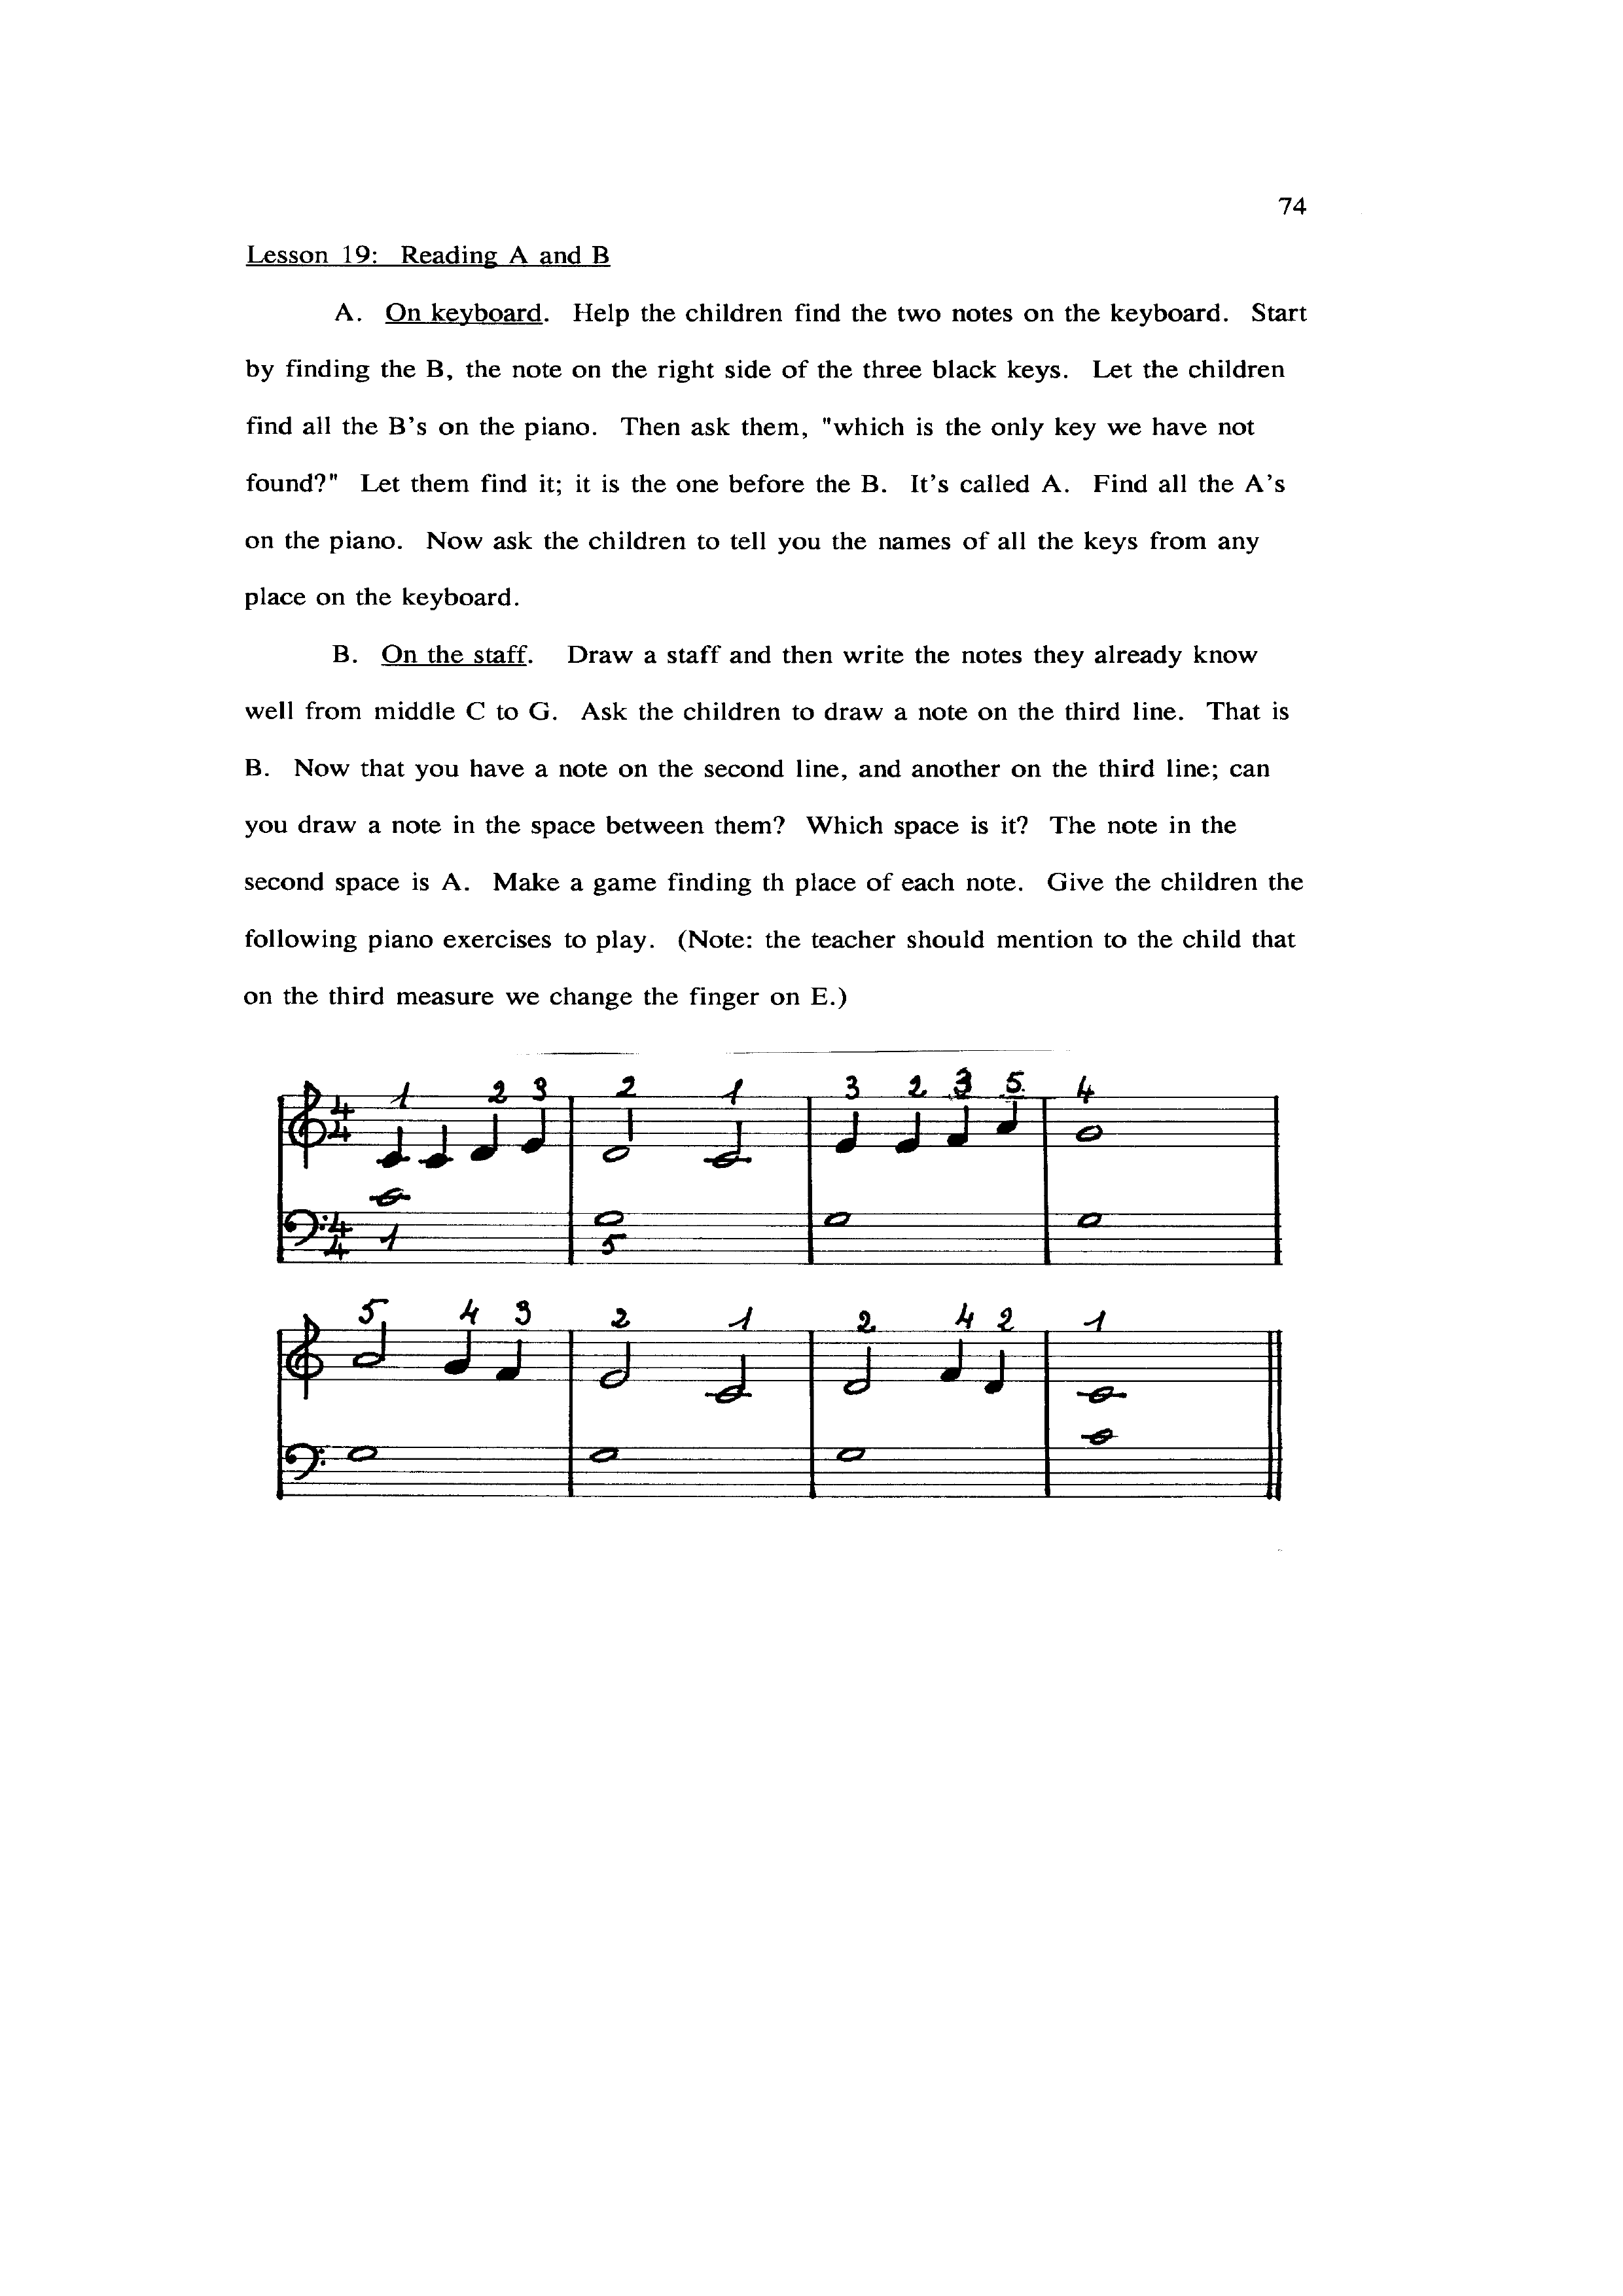 74
Lesson 19: Reading A and B
A. On keyboard. Help the children find the two notes on the keyboard. Start
by finding the B, the note on the right side of the three black keys. Let the children
find all the B's on the piano. Then ask them, "which is the only key we have not
found?" Let them find it; it is the one before the B. It's called A. Find all the A's
on the piano. Now ask the children to tell you the names of all the keys from any
place on the keyboard.
B. On the staff. Draw a staff and then write the notes they already know
well from middle C to G. Ask the children to draw a note on the third line. That is
B. Now that you have a note on the second line, and another on the third line; can
you draw a note in the space between them? Which space is it? The note in the
second space is A. Make a game finding th place of each note. Give the children the
following piano exercises to play. (Note: the teacher should mention to the child that
on the third measure we change the finger on E.)
1 2 3 2 1 3 2 3 5 4
4
4
4
4
1 5
5 4 3 2 1 2 4 2 1